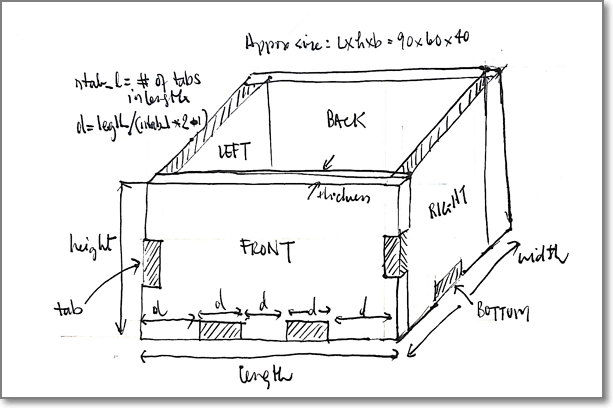 Approx size: LxHxb = 90x60x40
ntab_l = # of tabs
in length
d = legth/(ntabl*2+1)
BACK
LEFT
thickness
RIGHT
height
FRONT
width
tab
d
d
d
d
d
BOTTOM
length